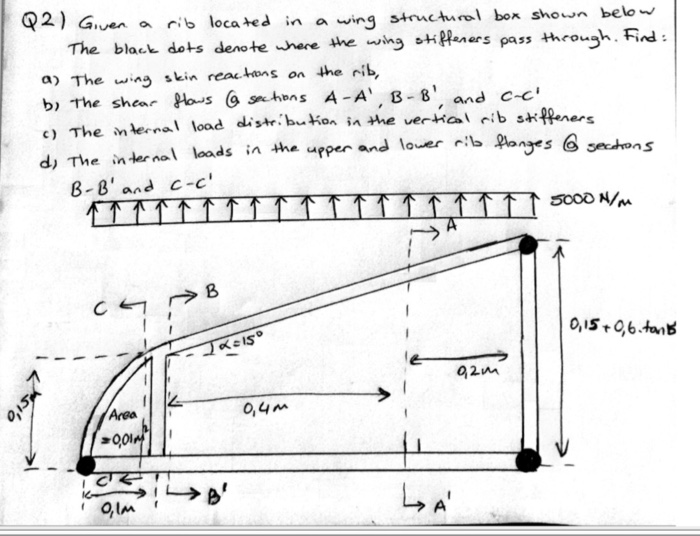 Q2) Given a rib located in a wing structural box shown below
The black dots denote where the wing stiffeners pass through. Find:
a) The wing skin reactions on the rib,
b) The shear flows @ sections A-A', B-B', and C-C'
c) The internal load distribution in the vertical rib stiffeners
d) The internal loads in the upper and lower rib flanges @ sections
B-B' and C-C'
5000 N/m
A
B
C
α=15°
0,15+0,6.tan15
0,2m
0,15m
0,4m
Area
=0,01m²
C'
B'
A'
0,1m